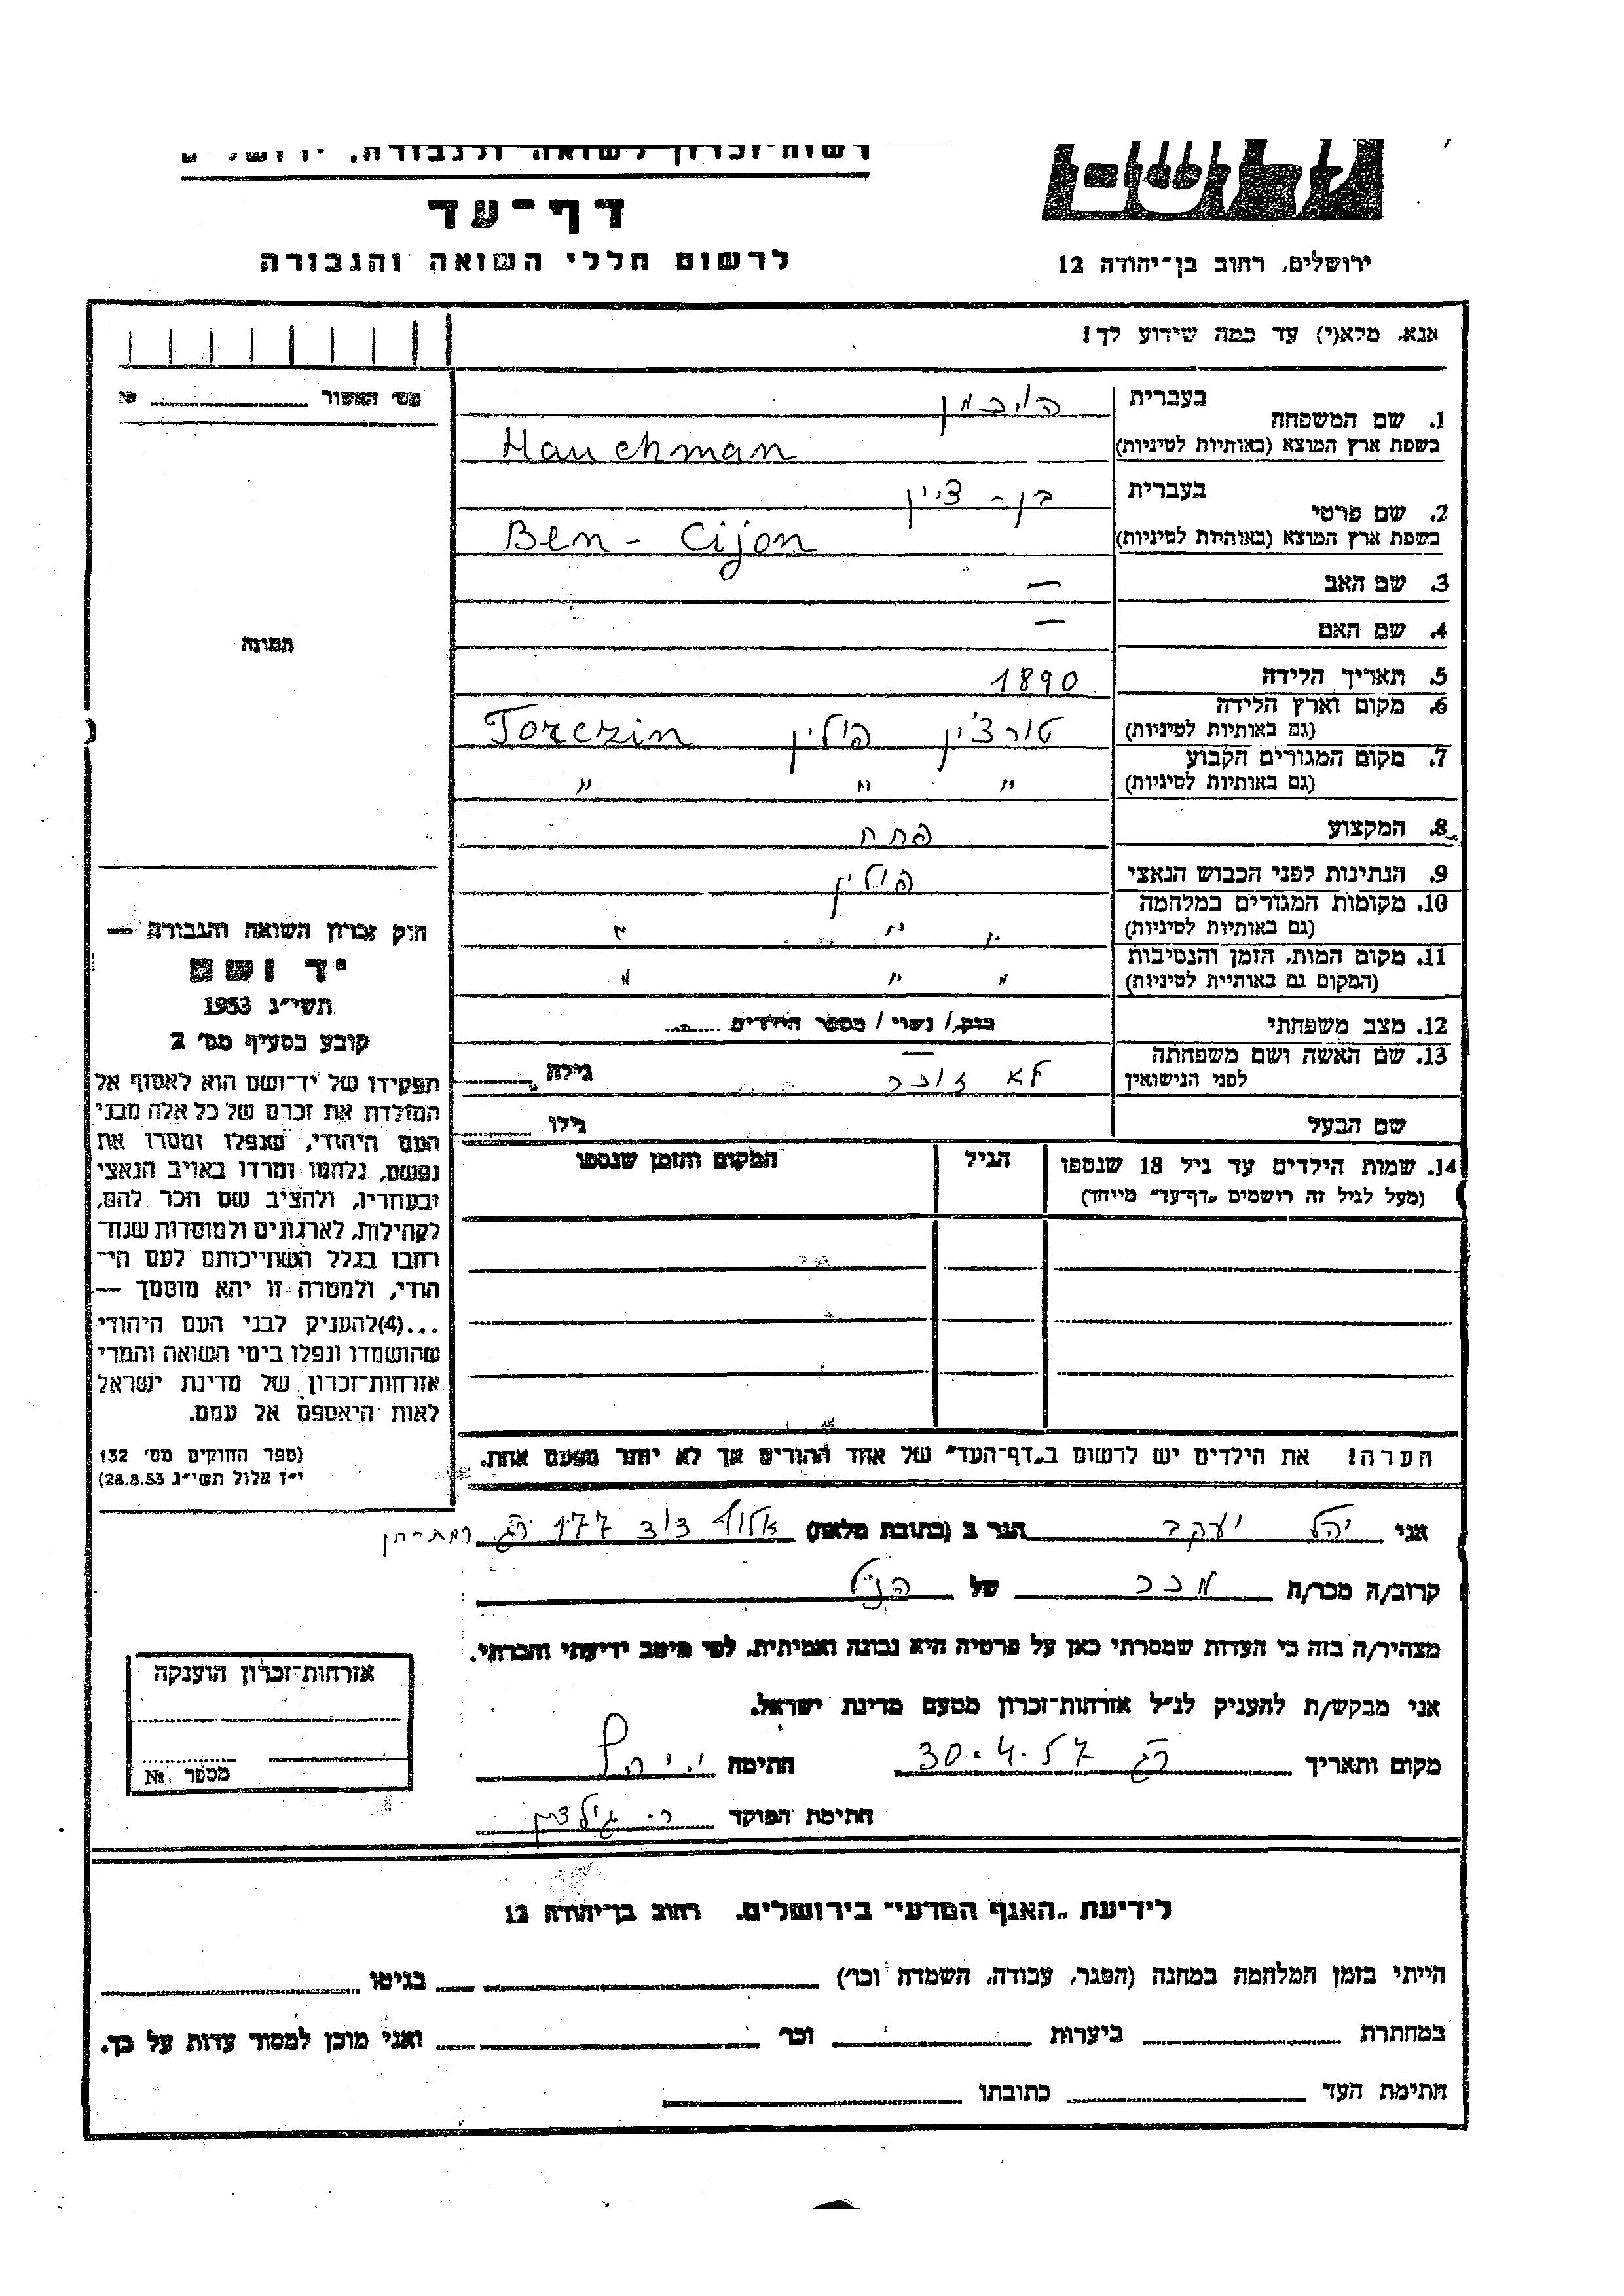 רשות-זכרון לשואה ולגבורה, ירושלים
דף-עד
לרשום חללי השואה והגבורה
ירושלים, רחוב בן-יהודה 12
אנא, מלא(י) עד כמה שידוע לך!
מס' האשור №
1. שם המשפחה בעברית הויכמן
בשפת ארץ המוצא (באותיות לטיניות) Hauchman
2. שם פרטי בעברית בן-ציון
בשפת ארץ המוצא (באותיות לטיניות) Ben-Cijon
3. שם האב —
4. שם האם —
תמונה
5. תאריך הלידה 1890
6. מקום וארץ הלידה טורצ'ין פולין Torczin
(גם באותיות לטיניות)
7. מקום המגורים הקבוע
(גם באותיות לטיניות) " " "
8. המקצוע פחח
9. הנתינות לפני הכבוש הנאצי פולין
10. מקומות המגורים במלחמה
(גם באותיות לטיניות) " " "
11. מקום המות, הזמן והנסיבות
(המקום גם באותיות לטיניות) " " "
12. מצב משפחתי רווק/ נשוי/ מספר הילדים
13. שם האשה ושם משפחתה
לפני הנישואין לא זוכר גילה
שם הבעל גילו
14. שמות הילדים עד גיל 18 שנספו הגיל המקום והזמן שנספו
(מעל לגיל זה רושמים „דף-עד" מיוחד)
הערה! את הילדים יש לרשום ב„דף-העד" של אחד ההורים אך לא יותר מפעם אחת.
חוק זכרון השואה והגבורה —
יד ושם
תשי"ג 1953
קובע בסעיף מס' 2
תפקידו של יד-ושם הוא לאסוף אל
המולדת את זכרם של כל אלה מבני
העם היהודי, שנפלו ומסרו את
נפשם, נלחמו ומרדו באויב הנאצי
ובעוזריו, ולהציב שם וזכר להם,
לקהילות, לארגונים ולמוסדות שנח-
רבו בגלל השתייכותם לעם הי-
הודי, ולמטרה זו יהא מוסמך —
...(4)להעניק לבני העם היהודי
שהושמדו ונפלו בימי השואה והמרי
אזרחות-זכרון של מדינת ישראל
לאות היאספם אל עמם.
(ספר החוקים מס' 132
י"ז אלול תשי"ג 28.8.53)
אני יהל יעקב הגר ב (כתובת מלאה) אלוף דוד 177 רמת-חן
קרוב/ה מכר/ה מכר של הנ"ל
מצהיר/ה בזה כי העדות שמסרתי כאן על פרטיה היא נכונה ואמיתית, לפי מיטב ידיעתי והכרתי.
אני מבקש/ת להעניק לנ"ל אזרחות-זכרון מטעם מדינת ישראל.
מקום ותאריך רג 30.4.57 חתימה י. יהל
חתימת הפוקד
אזרחות-זכרון הוענקה
מספר №
לידיעת „האגף המדעי" בירושלים. רחוב בן-יהודה 12
הייתי בזמן המלחמה במחנה (הסגר, עבודה, השמדה וכו') בגיטו
במחתרת ביערות וכו' ואני מוכן למסור עדות על כך.
חתימת העד כתובתו